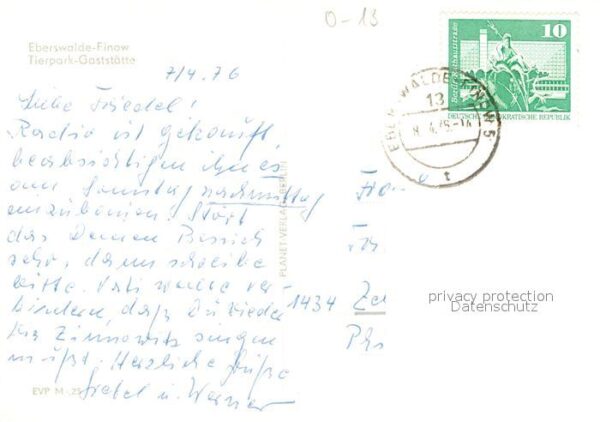 0-13
Eberswalde-Finow
Tierpark-Gaststätte
7/4.76
Liebe Friedel!
Radio ist gekauft,
beabsichtigen ihn es
am Sonntag nachmittag
einzubauen. Stört
das Deinen Besuch
sehr, dann schreibe
bitte. Vati wollte ver-
hindern, daß Du wieder
in Zinnowitz singen
mußt. Herzliche Grüße
u. Werner
EVP M -,25
PLANET-VERLAG BERLIN
10
Berlin-Rathausstraße
DEUTSCHE DEMOKRATISCHE REPUBLIK
EBERSWALDE-FINOW 5
13
8.4.76-14
t
1434
privacy protection
Datenschutz